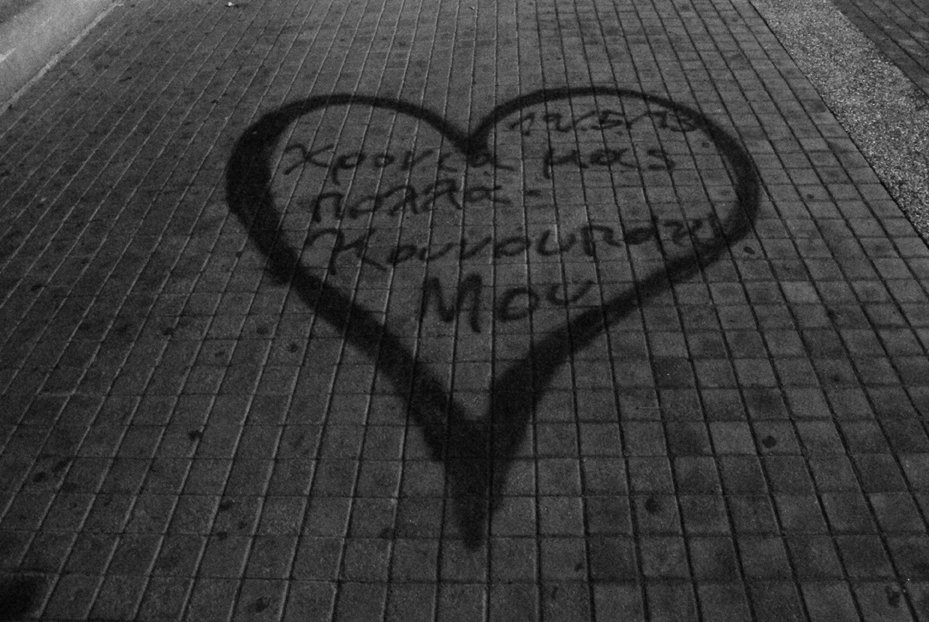 12.5.13
Χρονια μας
πολλα.
Κουνουπάκι
Μου